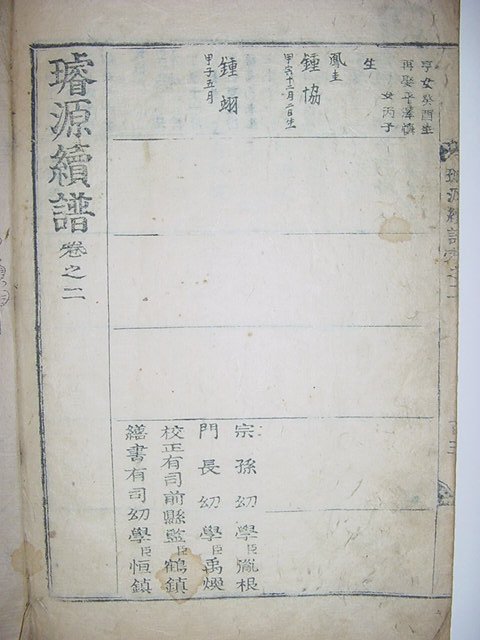 亨女癸酉生
再娶平澤
女丙子
生
鳳圭
鍾協
甲寅十二月二日生
鍾翊
甲子五月
宗孫幼學臣胤根
門長幼學臣禹煥
校正有司前縣監臣鶴鎮
繕書有司幼學臣恒鎮
璿源續譜卷之二
璿源續譜卷之二